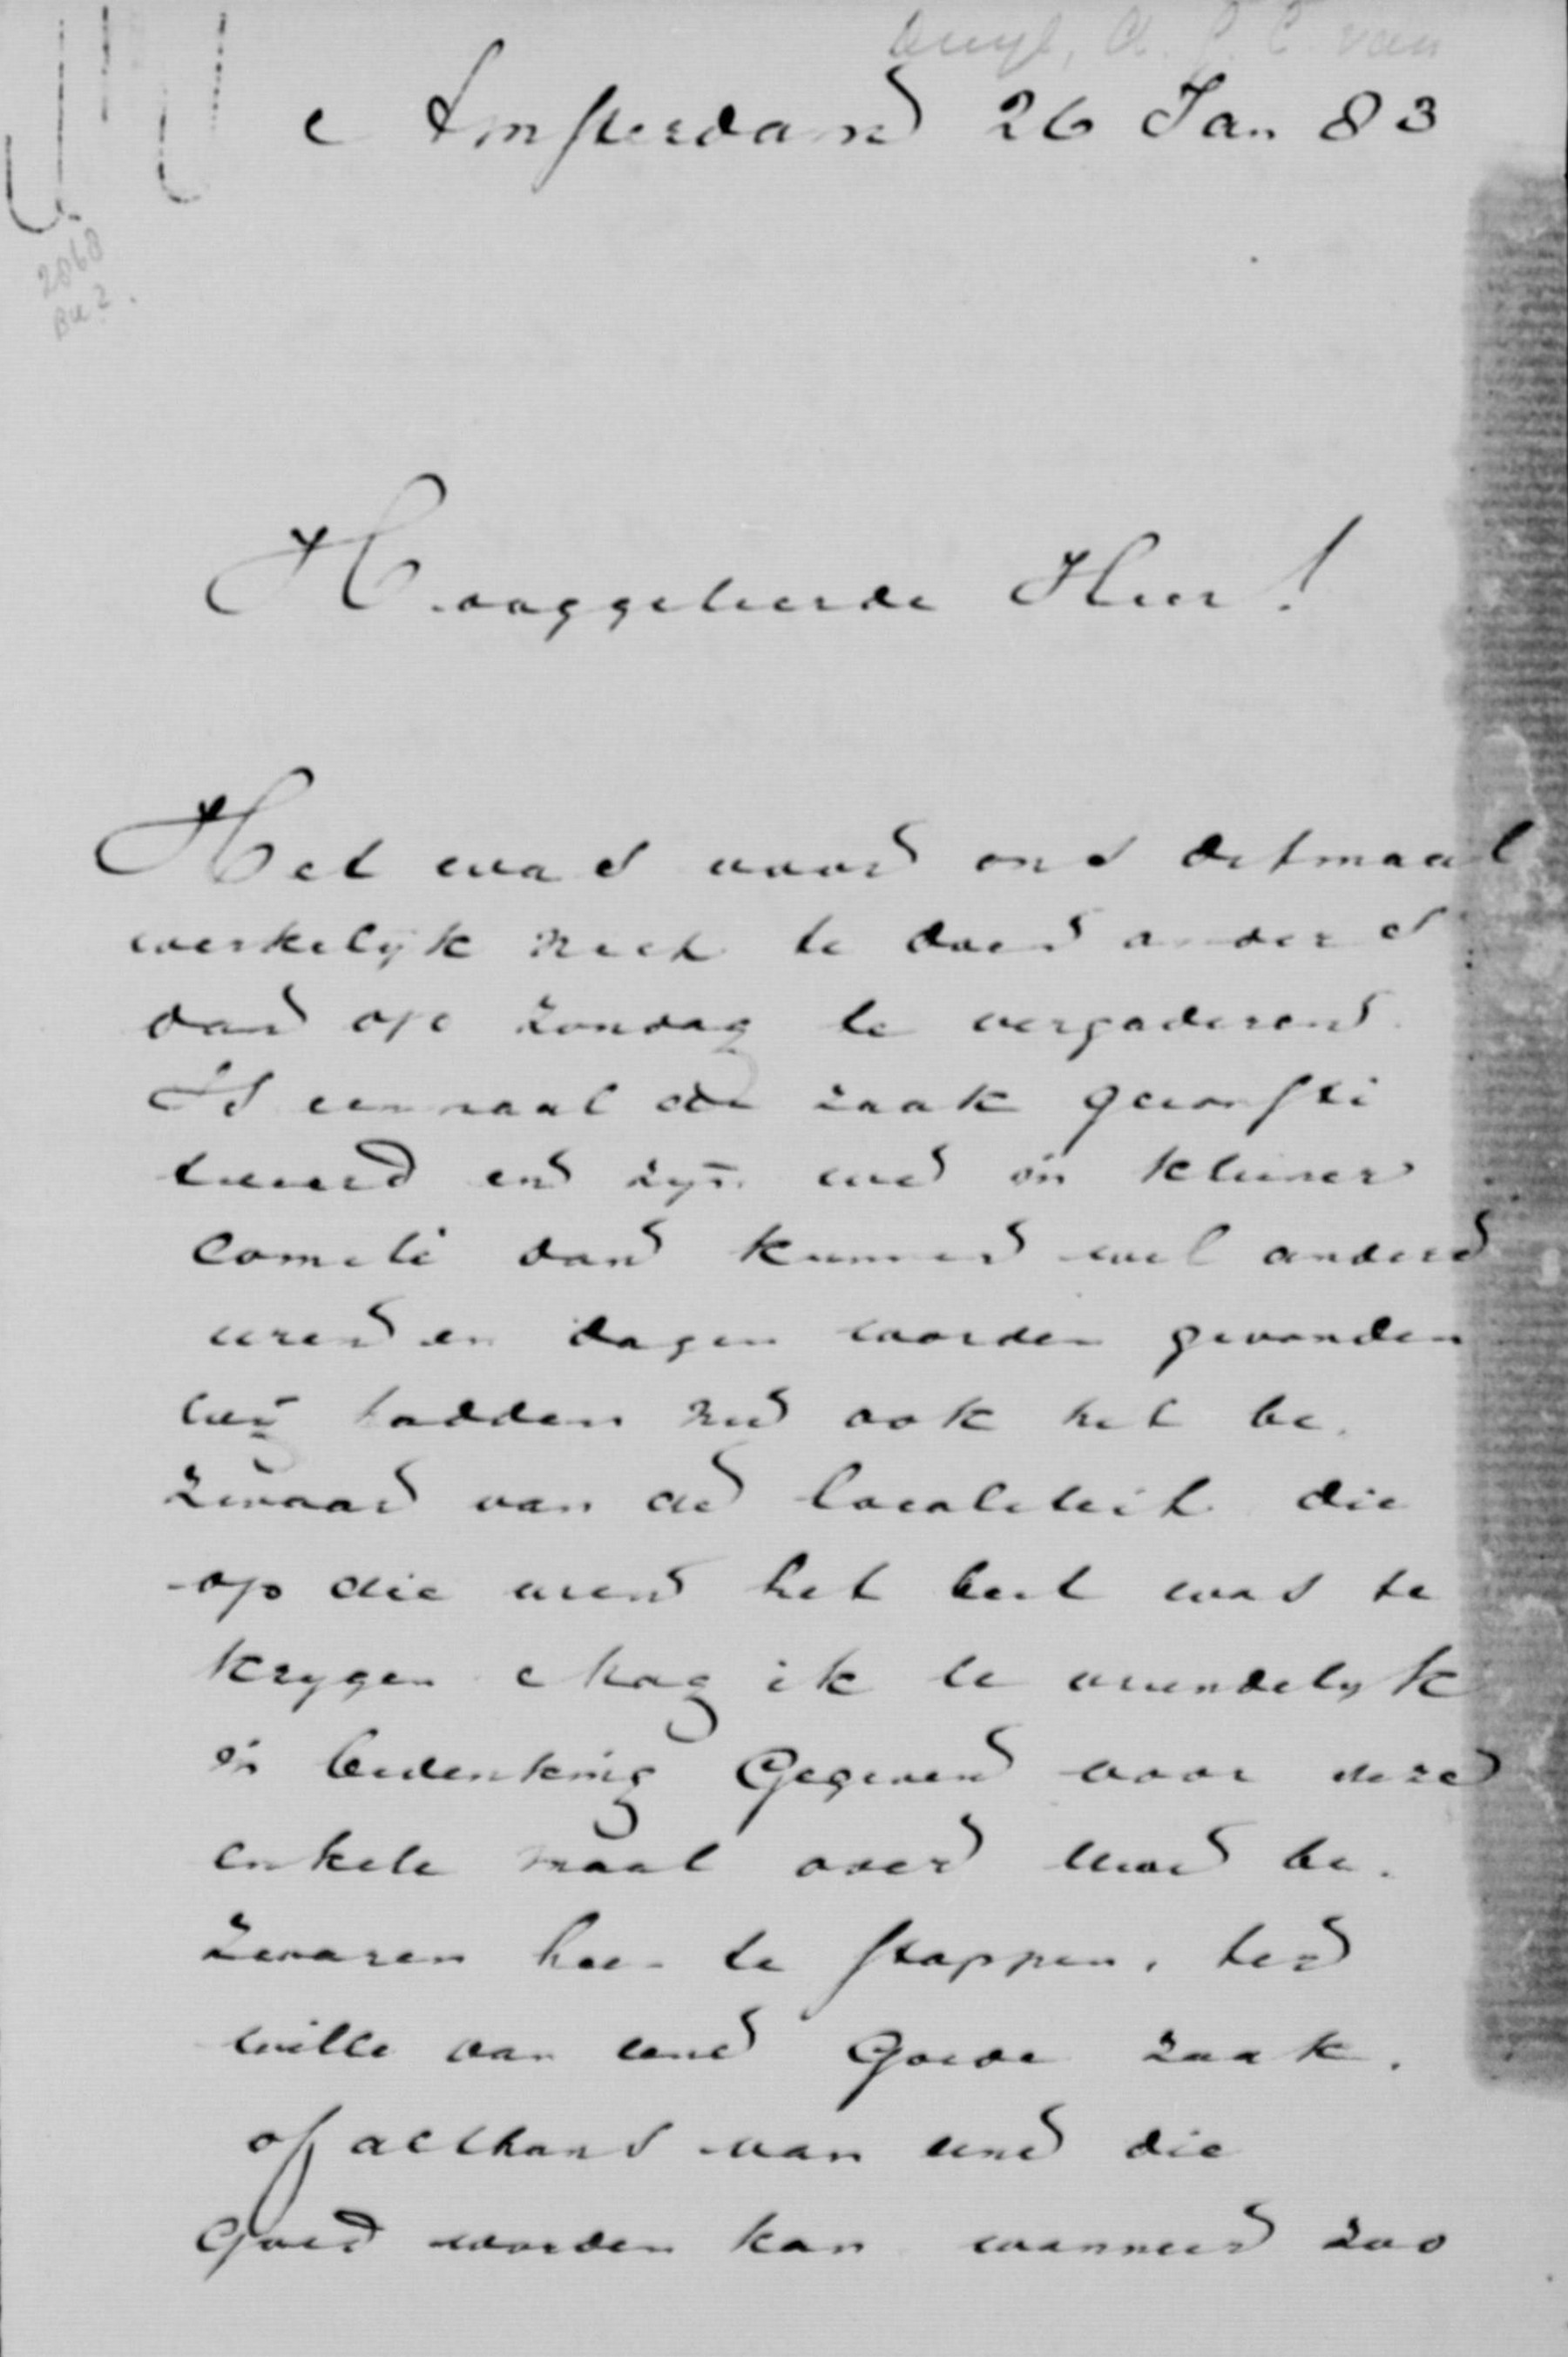 Amsterdam 26 Jan 83
2060
Hooggeleerde Heer!
Het was voor ons ditmaal
werkelijk niet te doen anders
dan op zondag te vergaderen.
Is eenmaal de zaak geconsti
tueerd en zijn we in kleiner
Comité dan kunnen wel andere
uren en dagen worden gevonden
wij hadden nu ook het be.
zwaar van de localiteit die
op die uren het best was te
krygen Mag ik U vriendelyk
in bedenking Geven voor deze
enkele maal over Uwe be.
zwaren heen te stappen, ter
wille van eene Goede zaak.
of althans van eene die
Goed worden kan wanneer zoo